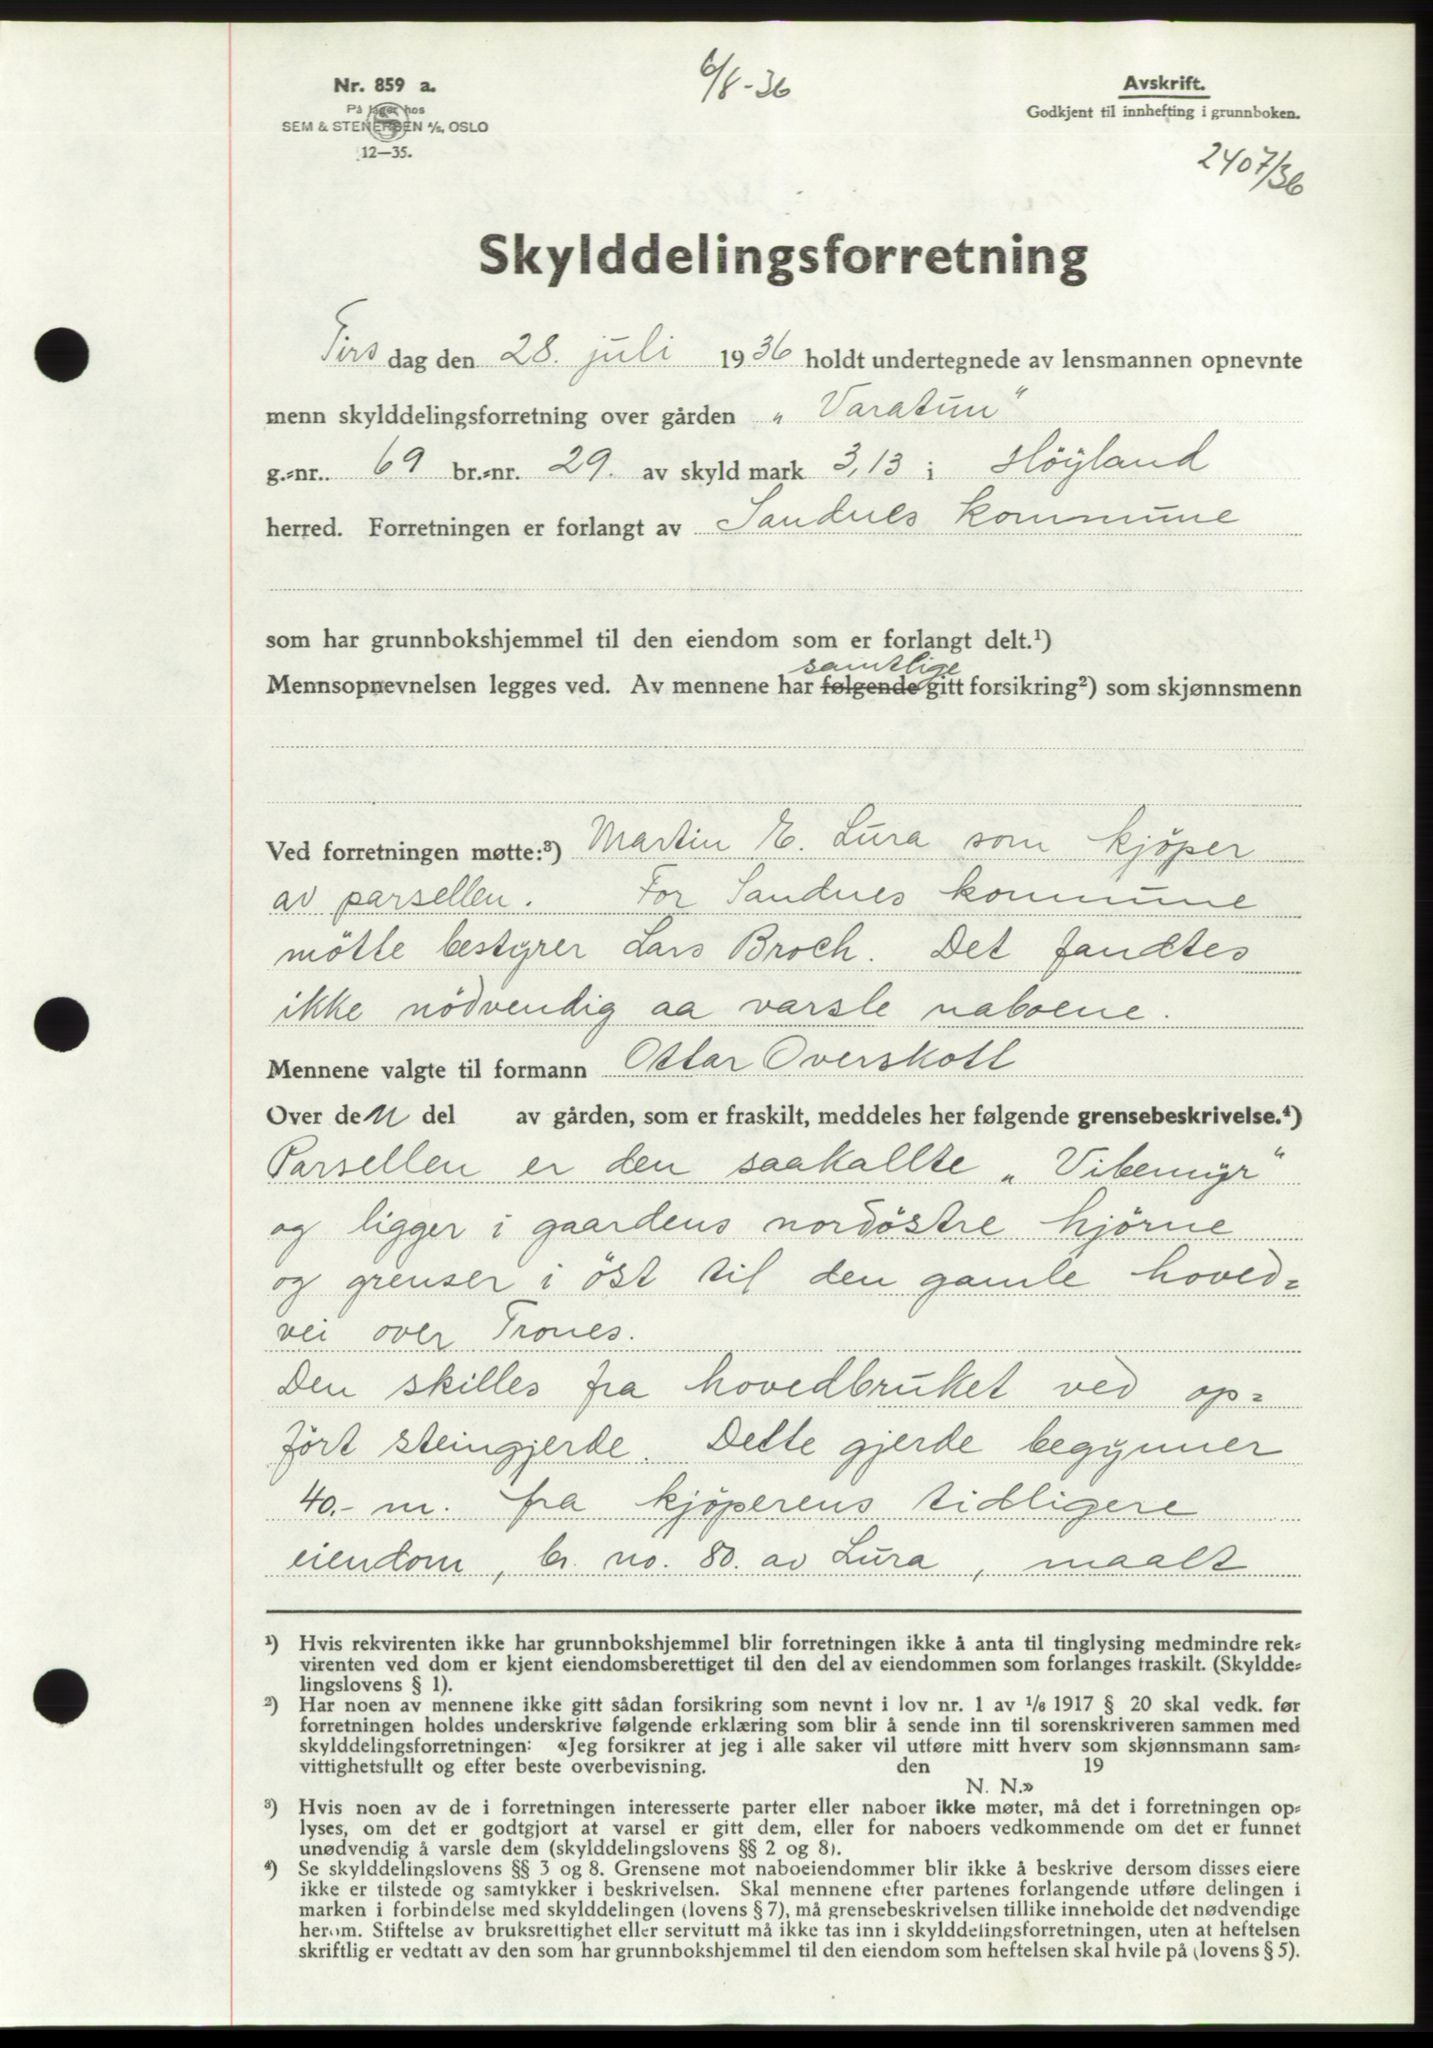 Nr. 859 a.
På lager hos
SEM & STENERSEN A/S, OSLO
12—35.
6/8-36
Avskrift.
Godkjent til innhefting i grunnboken.
2407/36
Skylddelingsforretning
Tirsdag den 28. juli 1936 holdt undertegnede av lensmannen opnevnte
menn skylddelingsforretning over gården „Varatun“
g.-nr.. 69 br.-nr. 29. av skyld mark 3,13 i Höyland
herred. Forretningen er forlangt av Sandnes kommune
som har grunnbokshjemmel til den eiendom som er forlangt delt.¹)
samtlige
Mennsopnevnelsen legges ved. Av mennene har følgende gitt forsikring²) som skjønnsmenn
Ved forretningen møtte:³) Martin E. Lura som kjöper
av parsellen. For Sandnes kommune
mötte bestyrer Lars Broch. Det fandtes
ikke nödvendig aa varsle naboene.
Mennene valgte til formann Ottar Overskott
Over den del av gården, som er fraskilt, meddeles her følgende grensebeskrivelse.⁴)
Parsellen er den saakallte „Vibemyr“
og ligger i gaardens nordöstre hjörne
og grenser i öst til den gamle hoved=
vei over Trones.
Den skilles fra hovedbruket ved op=
fört steingjerde. Dette gjerde begynner
40.- m. fra kjöperens tidligere
eiendom, br. no. 80. av Lura, maalt
¹) Hvis rekvirenten ikke har grunnbokshjemmel blir forretningen ikke å anta til tinglysing medmindre rek-
virenten ved dom er kjent eiendomsberettiget til den del av eiendommen som forlanges fraskilt. (Skyldde-
lingslovens § 1).
²) Har noen av mennene ikke gitt sådan forsikring som nevnt i lov nr. 1 av ¹/₆ 1917 § 20 skal vedk. før
forretningen holdes underskrive følgende erklæring som blir å sende inn til sorenskriveren sammen med
skylddelingsforretningen: «Jeg forsikrer at jeg i alle saker vil utføre mitt hverv som skjønnsmann sam-
vittighetsfullt og efter beste overbevisning. den 19
N. N.»
³) Hvis noen av de i forretningen interesserte parter eller naboer ikke møter, må det i forretningen op-
lyses, om det er godtgjort at varsel er gitt dem, eller for naboers vedkommende om det er funnet
unødvendig å varsle dem (skylddelingslovens §§ 2 og 8).
⁴) Se skylddelingslovens §§ 3 og 8. Grensene mot naboeiendommer blir ikke å beskrive dersom disses eiere
ikke er tilstede og samtykker i beskrivelsen. Skal mennene efter partenes forlangende utføre delingen i
marken i forbindelse med skylddelingen (lovens § 7), må grensebeskrivelsen tillike inneholde det nødvendige
herom. Stiftelse av bruksrettighet eller servitutt må ikke tas inn i skylddelingsforretningen, uten at heftelsen
skriftlig er vedtatt av den som har grunnbokshjemmel til den eiendom som heftelsen skal hvile på (lovens § 5).